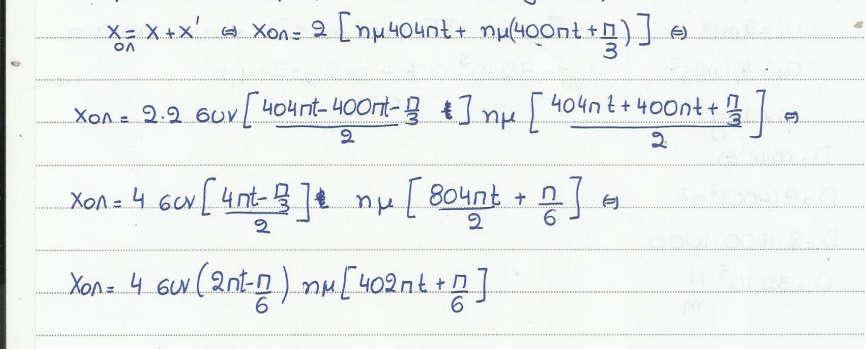 x_ολ = x + x' ⇔ x_ολ = 2 [ημ404πt + ημ(400πt + π/3)] ⇔
x_ολ = 2·2 συν[(404πt - 400πt - π/3)/2] ημ[(404πt + 400πt + π/3)/2] ⇔
x_ολ = 4 συν[(4πt - π/3)/2] ημ[804πt/2 + π/6] ⇔
x_ολ = 4 συν(2πt - π/6) ημ[402πt + π/6]